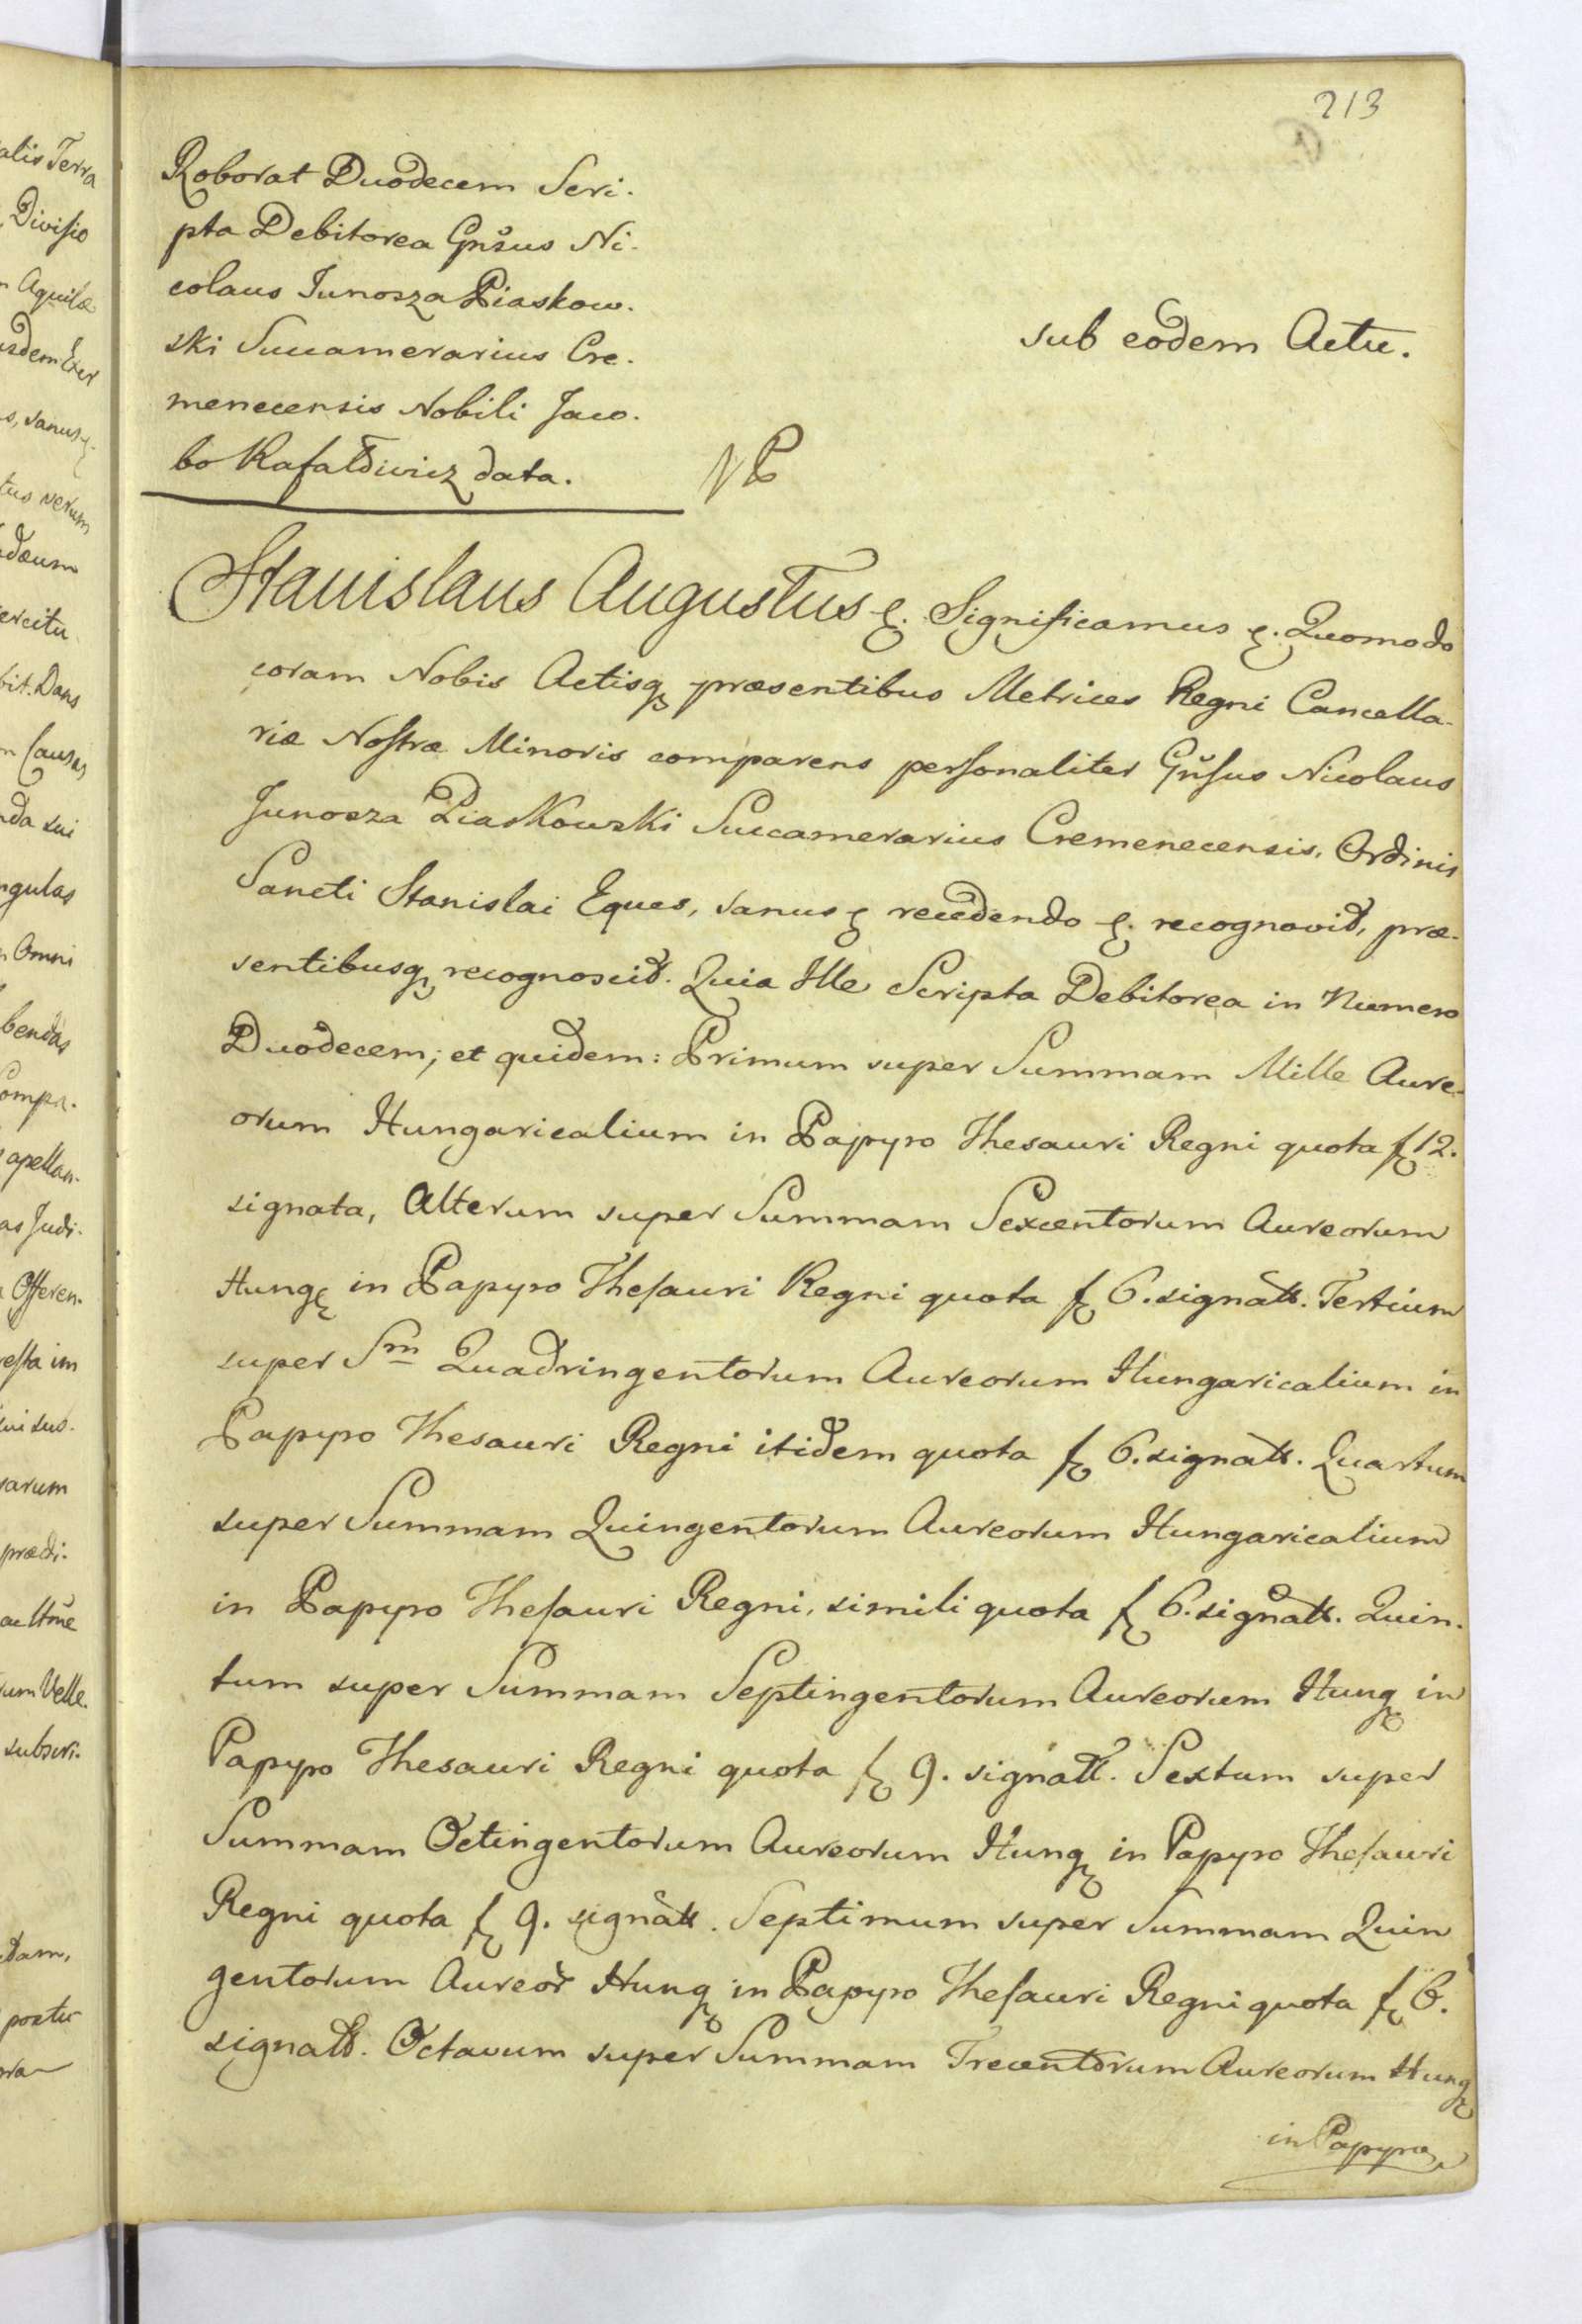 213
Roborat Duodecem Scri-
pta Debitorea Gnšus Ni-
colaus Junosza Piaskow-
ski Succamerarius Cre-
menecensis Nobili Jaco-
bo Rafałowicz data.
sub eodem Actu.
Stanislaus Augustus &. Significamus &. Quomodo
coram Nobis Actisq; præsentibus Metrices Regni Cancella-
riæ Nostræ Minoris comparens personaliter Gnšus Nicolaus
Junosza Piaskowski Succamerarius Cremenecensis, Ordinis
Sancti Stanislai Eques, sanus & recedendo &. recognovit, præ-
sentibusq; recognoscit. Quia Ille Scripta Debitorea in Numero
Duodecem; et quidem: Primum super Summam Mille Aure-
orum Hungaricalium in Papyro Thesauri Regni quota f 12.
signata, Alterum super Summam Sexcentorum Aureorum
Hung; in Papyro Thesauri Regni quota f 6. signatt. Tertium
super Sm Quadringentorum Aureorum Hungaricalium in
Papyro Thesauri Regni itidem quota f 6. signatt. Quartum
super Summam Quingentorum Aureorum Hungaricalium
in Papyro Thesauri Regni, simili quota f 6. signatt. Quin-
tum super Summam Septingentorum Aureorum Hung; in
Papyro Thesauri Regni quota f 9. signatt. Sextum super
Summam Octingentorum Aureorum Hung; in Papyro Thesauri
Regni quota f 9. signatt. Septimum super Summam Quin
gentorum Aureor Hung; in Papyro Thesauri Regni quota f 6.
signatt. Octavum super Summam Trecentorum Aureorum Hung;
in Papyro